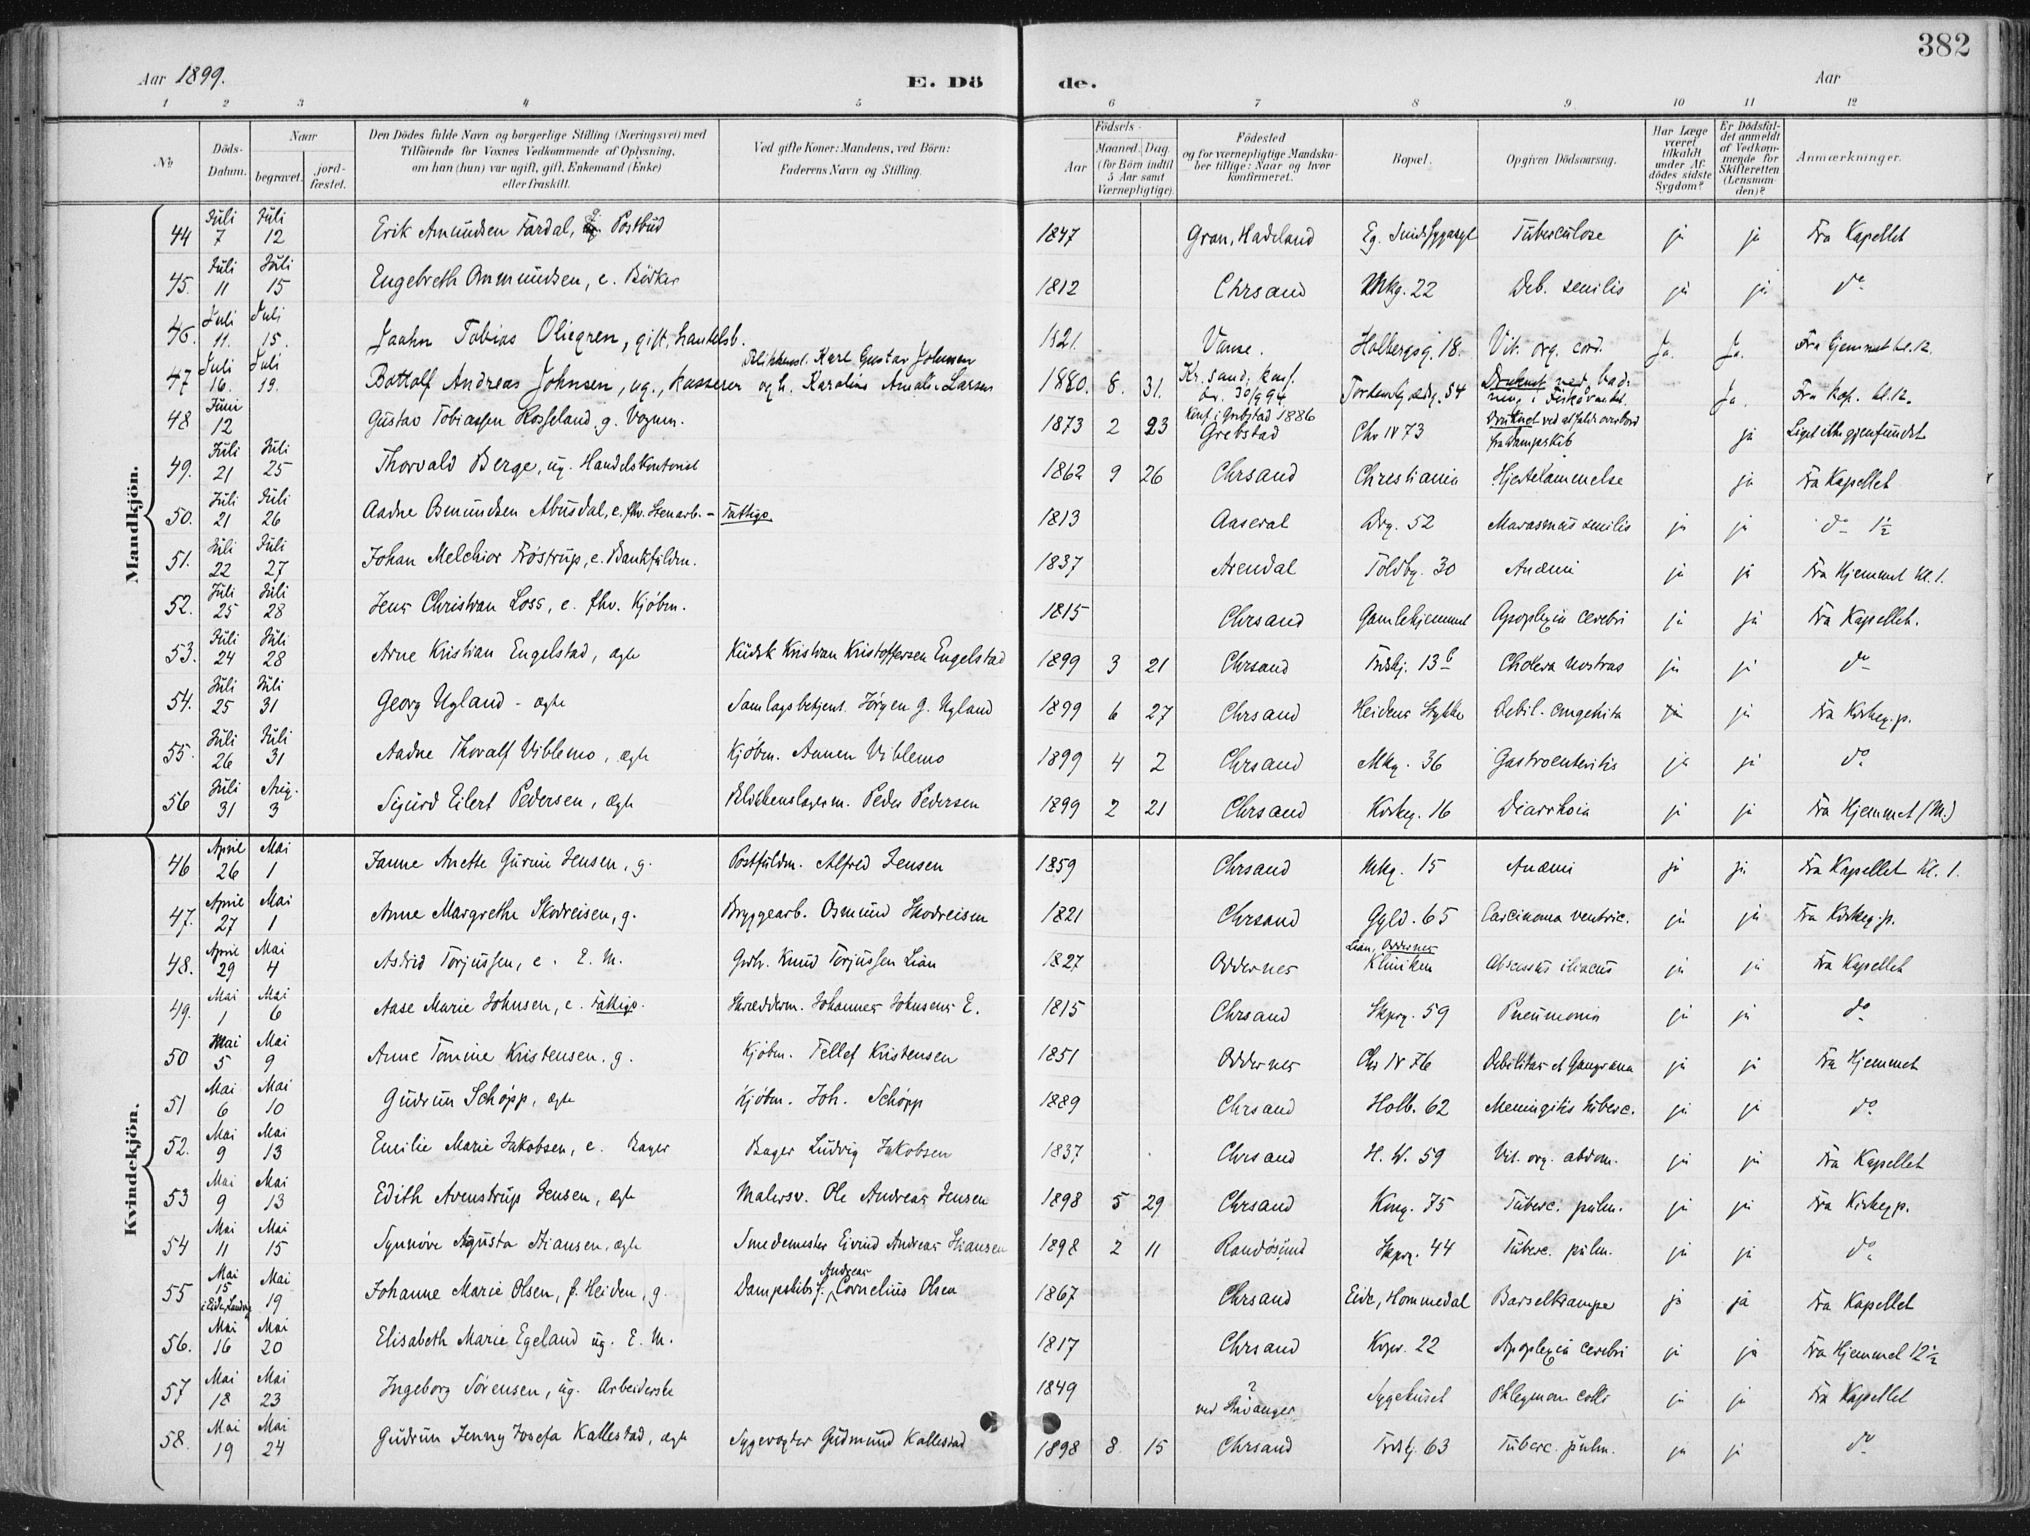 382
Aar 1899.
E. Dö de.
Aar
1 2 3 4 5 6 7 8 9 10 11 12
No
Döds-Datum.
Naar
begravet.
jord-fæstet.
Den Dödes fulde Navn og borgerlige Stilling (Næringsvei) med
Tilföiende for Voxnes Vedkommende af Oplysning,
om han (hun) var ugift, gift, Enkemand (Enke)
eller fraskilt.
Ved gifte Koner: Mandens, ved Börn:
Faderens Navn og Stilling.
Födsels-
Aar
Maaned. Dag.
(for Börn indtil 5 Aar samt Værnepligtige).
Födested
og for værnepligtige Mandskaber tillige: Naar og hvor konfirmeret.
Bopæl.
Opgiven Dödsaarsag.
Har Læge været tilkaldt under Afdödes sidste Sygdom?
Er Dödsfaldet anmeldt af Vedkommende for Skifteretten (Lensmanden)?
Anmærkninger.
Mandkjön.
44 Juli 7 Juli 12 Erik Amundsen Fardal, Postbud 1847 Gran, Hadeland Tuberculose ja ja Fra Kapellet
45. Juli 11 Juli 15 Engebreth Ommundsen, e. Bödker 1812 Chrsand Mkg. 22 Deb. senilis ja ja do
46. Juli 11. Juli 15. Jaahn Tobias Oliegren, gift, handelsb. 1821. Vanse. Holbergsg. 18. Vit. org. cord. Ja. Ja. Fra hjemmet kl. 12.
47 Juli 16. Juli 19. Bottolf Andreas Johnsen, ug., kasserer Blikkensl. Karl Gustav Johnsen og h. Karoline Amalie Larsen 1880. 8. 31. Kr.sand, konf. 30/9 94 Tordenskjoldsg. 54 Druknet ved badning i Ja. Fra kap. kl. 12.
48 Juni 12 Gustav Tobiassen Rosseland g. Vognm. 1873 2 23 Konf. i Grebstad 1886 Grebstad Chr IV 73 Druknet ved at falde overbord fra Dampskib ja Liget ikke gjenfundet
49. Juli 21 Juli 25 Thorvald Berge, ug. Handelskontorist 1862 9 26 Chrsand Christiania Hjertelammelse ja Fra Kapellet
50. Juli 21 Juli 26 Aadne Osmundsen Abusdal, e. fhv. Stenarb. - Fattigo. 1813 Aaseral Drg. 52 Marasmus senilis ja ja do 1½
51. Juli 22 Juli 27 Johan Melchior Fröstrup, e. Bankfuldm. 1837 Arendal Toldbg. 30 Anæmi ja ja Fra Hjemmet Kl. 1.
52. Juli 25 Juli 28 Jens Christian Loss, e. fhv. Kjöbm. 1815 Chrsand Gamlehjemmet Apoplexia cerebri ja ja Fra Kapellet.
53. Juli 24 Juli 28 Arne Kristian Engelstad, ægte Kudsk Kristian Kristoffersen Engelstad 1899 3 21 Chrsand Cholera nostras ja ja do
54. Juli 25 Juli 31 Georg Ugland - ægte Samlagsbetjent. Jörgen G. Ugland 1899 6 27 Chrsand Heidens Stykke Debil. congenita ja ja Fra Kirkeg.p.
55. Juli 26 Juli 31 Aadne Thoralf Viblemo, ægte Kjöbm. Aanen Viblemo 1899 4 2 Chrsand Mkg. 36 Gastroenteritis ja ja do
56 Juli 31 Aug. 3 Sigurd Eilert Pedersen, ægte Blikkenslagerm. Peder Pedersen 1899 2 21 Chrsand Kirkeg. 16 Diarrhoia ja ja Fra Hjemmet (M.)
Kvindekjön.
46 April 26 Mai 1 Janne Anette Gurine Jensen, g. Postfuldm. Alfred Jensen 1859 Chrsand Mkg. 15 Anæmi ja ja Fra Kapellet Kl. 1.
47. April 27 Mai 1 Anne Margrethe Skodreisen, g. Bryggearb. Osmund Skodreisen 1821 Chrsand Gyld. 65 Carcinoma ventric. ja ja Fra Kirkeg.p.
48. April 29 Mai 4 Astrid Torjussen, e. E. M. Grbr. Knud Torjussen Lian 1827 Oddernes Lian, Oddernes Kliniken Abscessus iliacus ja ja Fra Kapellet
49. Mai 1 Mai 6 Aase Marie Johnsen, e. Fattigo. Skrædderm. Johannes Johnsens E. 1815 Chrsand Skprg. 59 Pneumonia ja ja do
50 Mai 5 Mai 9 Anne Tomine Kristensen. g. Kjöbm. Tellef Kristensen 1851 Oddernes Chr IV 76 Debilitas et Gangræna ja ja Fra Hjemmet
51 Mai 6 Mai 10 Gudrun Schöpp, ægte Kjöbm. Joh. Schöpp 1889 Chrsand Holb. 62 Meningitis tuberc. ja ja do
52. Mai 9 Mai 13 Emilie Marie Jakobsen, e. Bager Bager Ludvig Jakobsen 1837 Chrsand H. W. 59 Vit. org. abdom. ja ja Fra Kapellet
53 Mai 9 Mai 13 Edith Avenstrup Jensen, ægte Malersv. Ole Andreas Jensen 1898 5 29 Chrsand Kong. 75 Tuberc. pulm. ja ja Fra Kirkeg.p.
54 Mai 11 Mai 15 Synnöve Agusta Hansen, ægte Smedemester Eivind Andreas Hansen 1898 2 11 Randösund Skprg. 44 Tuberc. pulm. ja ja do
55 Mai 15 i Eide, Landvig Mai 19 Johanne Marie Olsen, f. Heiden, g. Dampskibsf. Andreas Cornelius Olsen 1867 Chrsand Eide, Hommedal Barselkrampe ja ja Fra Kapellet
56. Mai 16 Mai 20 Elisabeth Marie Egeland ug. E. M. 1817 Chrsand 22 Apoplexia cerebri ja ja Fra Hjemmet 12½
57 Mai 18 Mai 23 Ingeborg Sörensen, ug. Arbeiderske 1849 ? ved Stavanger Sygehuset Phlegmon colli ja ja Fra Kapellet
58. Mai 19 Mai 24 Gudrun Jenny Josefa Kallestad, ægte Sygevogter Gudmund Kallestad 1898 8. 15 Chrsand 63 Tuberc. pulm. ja ja do